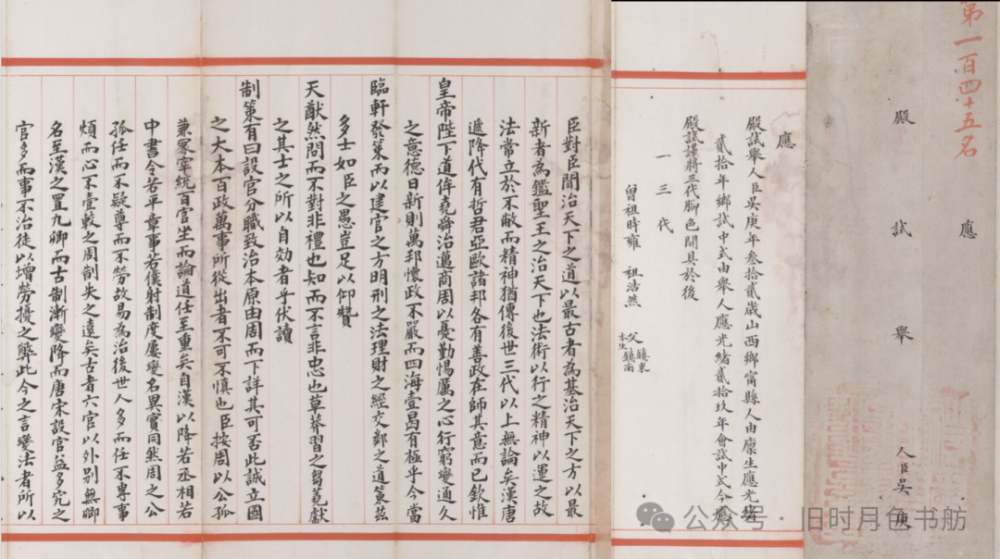 第一百四十五名
應
殿試舉人臣吳庚
應
殿試舉人臣吳庚年叁拾貳歲山西鄉甯縣人由廩生應光緒
貳拾年鄉試中式由舉人應光緒貳拾玖年會試中式今應
殿試謹將三代腳色開具於後
一三代
曾祖時雍 祖浩然 父鎮東
本生鎮南
臣對臣聞治天下之道以最古者為基治天下之方以最
新者為鑑聖王之治天下也法術以行之精神以運之故
法常立於不敝而精神猶傳後世三代以上無論矣漢唐
遞降代有哲君亞歐諸邦各有善政在師其意而已欽惟
皇帝陛下道侔堯舜治邁商周以憂勤惕厲之心行窮變通久
之意德日新則萬邦懷政不嚴而四海壹曷有極乎今當
臨軒發策而以建官之方明刑之法理財之經交鄰之道策茲
多士如臣之愚豈足以仰贊
天猷然問而不對非禮也知而不言非忠也草莽習之芻蕘獻
之其士之所以自効者乎伏讀
制策有曰設官分職致治本原由周而下詳其可否此誠立國
之大本百政萬事所從出者不可不慎也臣按周以公孤
兼冢宰統百官坐而論道任至重矣自漢以降若丞相若
中書令若平章事若僕射制度屢變名異實同然周之公
孤任而不疑尊而不勞故易為治後世人多而任不專事
煩而心不壹較之周制失之遠矣古者六官以外別無卿
名至漢之置九卿而古制漸變降而唐宋設官益多冗之
官多而事不治徒以增勞擾之弊此今之言變法者所以
公众号·旧时月色书舫